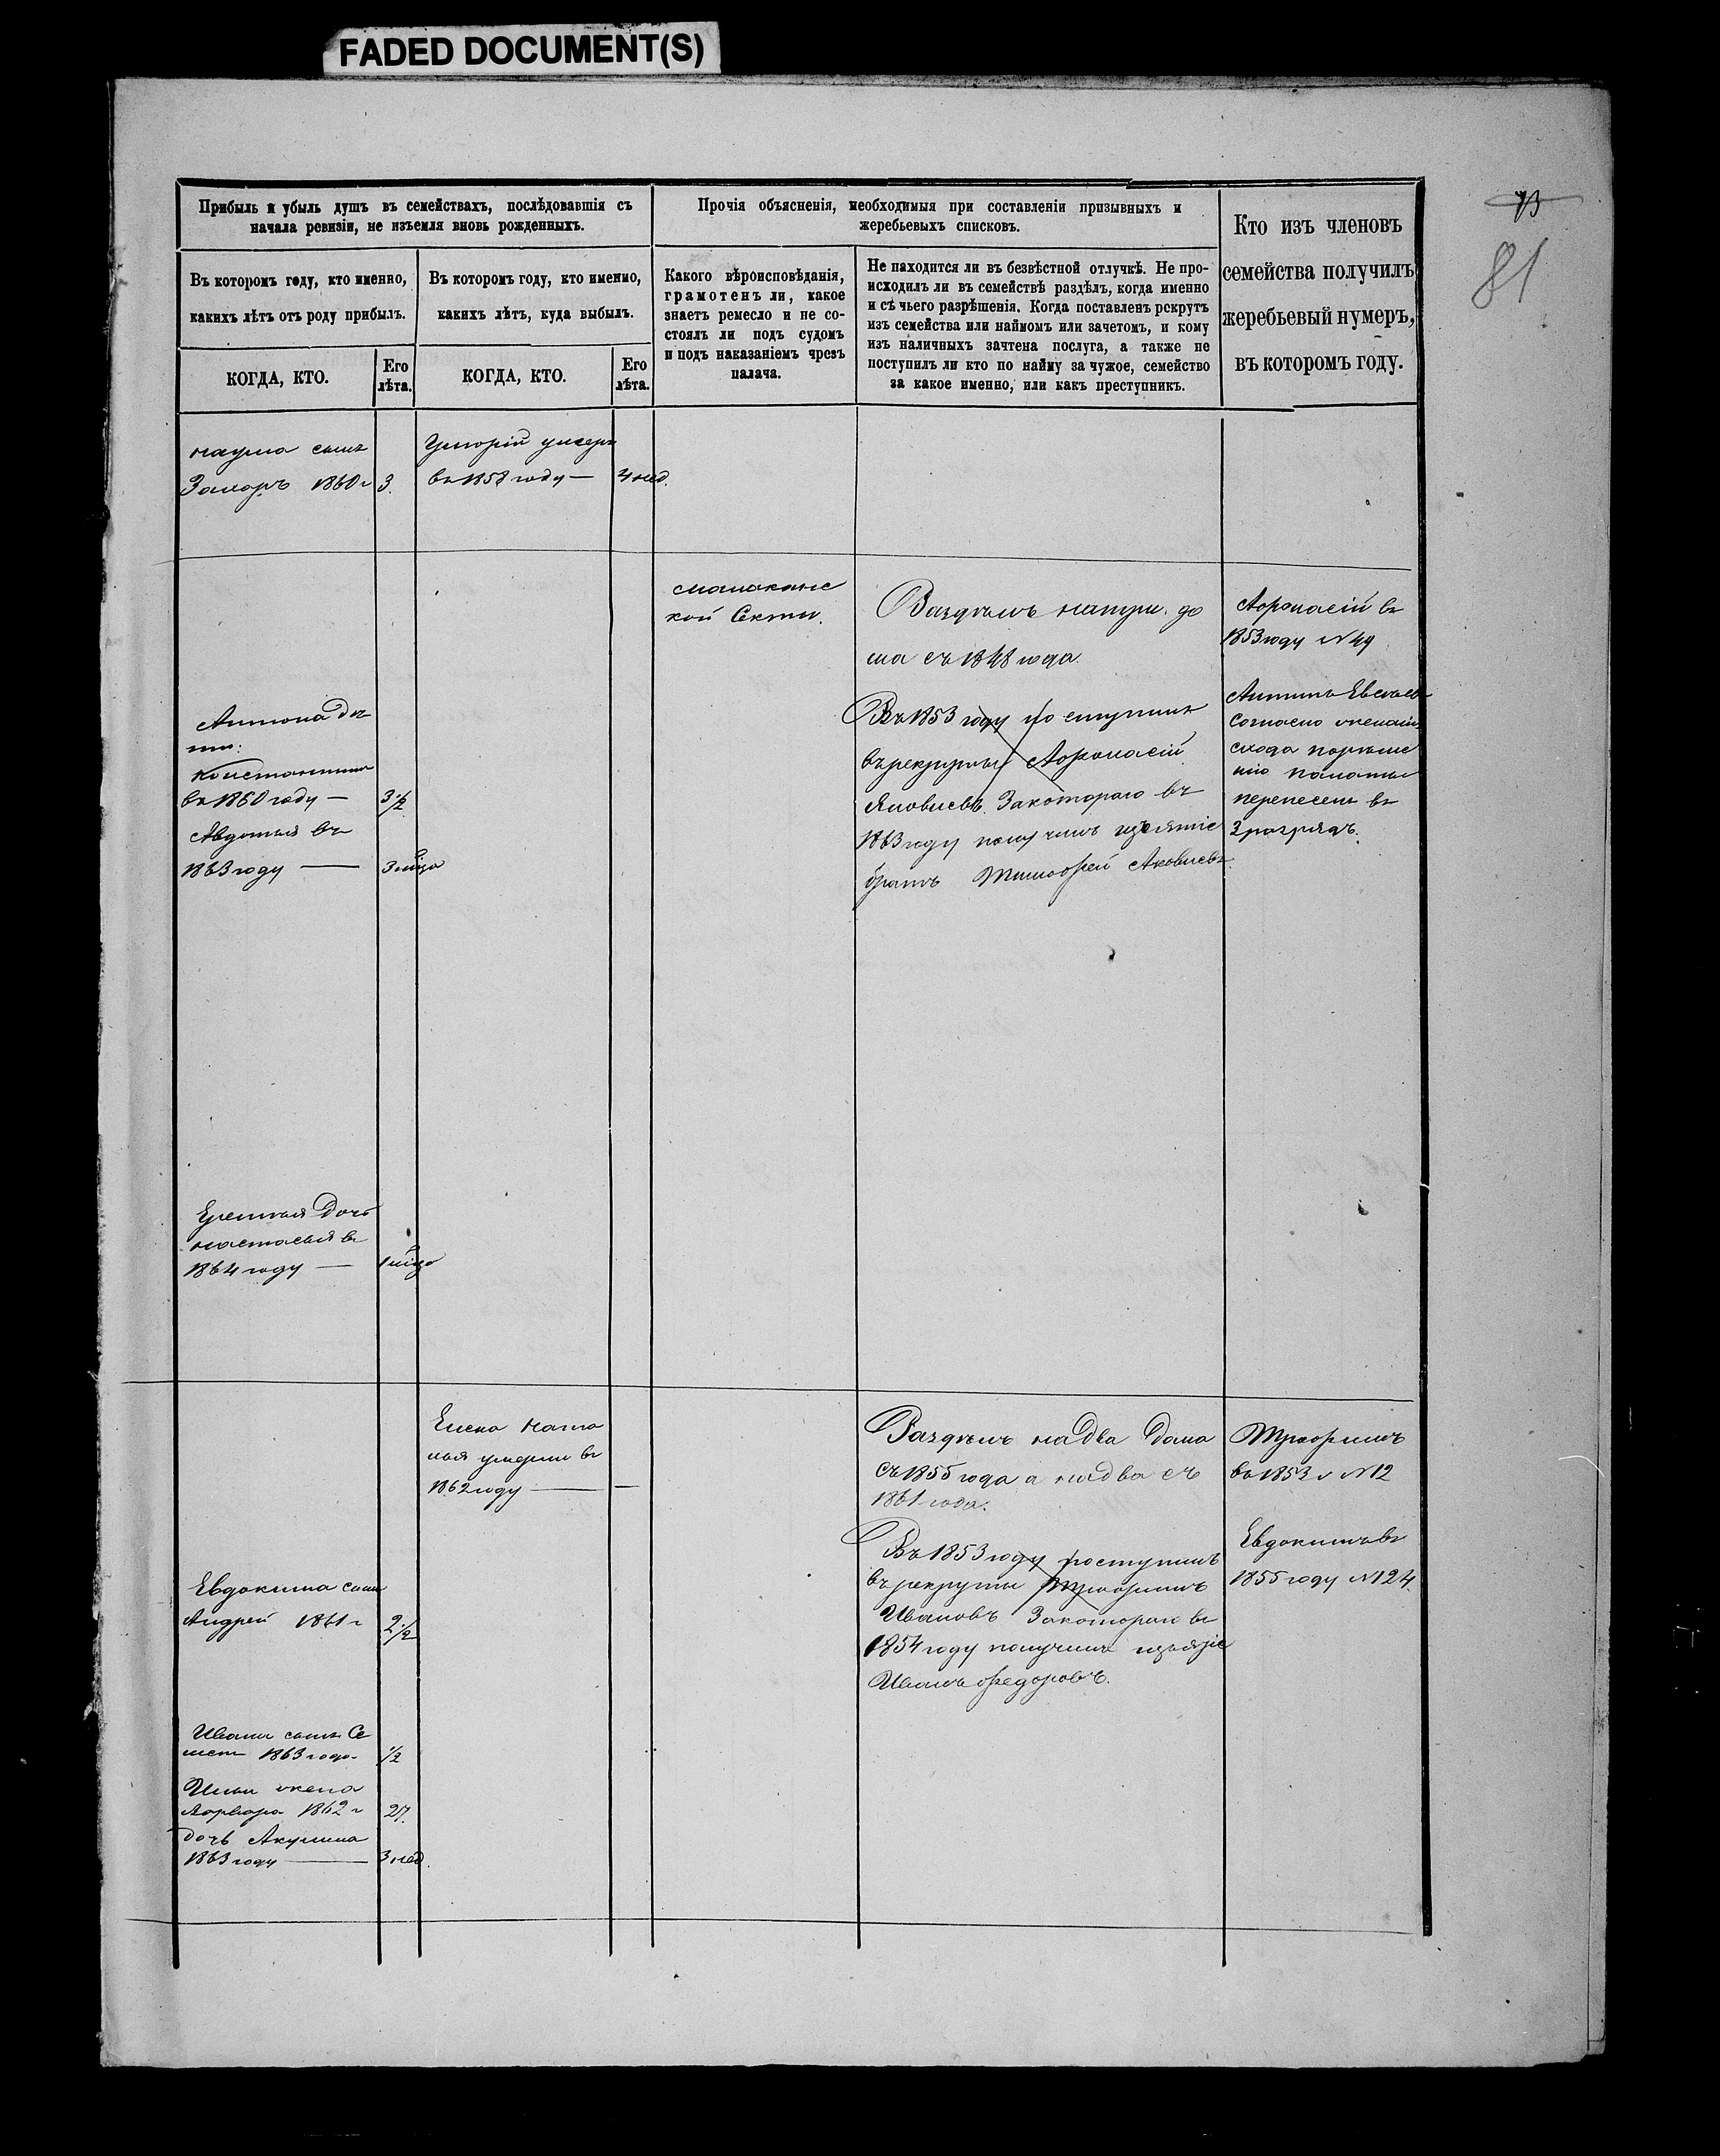 FADED DOCUMENT(S)
81
Прибыль и убыль душъ въ семействахъ, послѣдовавшія съ
начала ревизіи, не изъемля вновь рожденныхъ.
Въ которомъ году, кто именно,
какихъ лѣтъ отъ роду прибылъ.
КОГДА, КТО.
Его
лѣта.
Въ которомъ году, кто именно,
какихъ лѣтъ, куда выбылъ.
КОГДА, КТО.
Его
лѣта.
Прочія объясненія, необходимыя при составленіи призывныхъ и
жеребьевыхъ списковъ.
Какого вѣроисповѣданія,
грамотенъ ли, какое
знаетъ ремесло и не со-
стоялъ ли подъ судомъ
и подъ наказаніемъ чрезъ
палача.
Не находится ли въ безвѣстной отлучкѣ. Не про-
исходилъ ли въ семействѣ раздѣлъ, когда именно
и съ чьего разрѣшенія. Когда поставленъ рекрутъ
изъ семейства или наймомъ или зачетомъ, и кому
изъ наличныхъ зачтена послуга, а также не
поступилъ ли кто по найму за чужое, семейство
за какое именно, или какъ преступникъ.
Кто изъ членовъ
семейства получилъ
жеребьевый нумеръ,
въ которомъ году.
наума сынъ
Захаръ 1860 г 3.
умеръ
въ 1858 году — 4 нед.
малаканс
кой Секты.
Раздѣлъ на три до
ма съ 1848 года
Афонасій въ
1853 году № 49
Антона дѣ
ти:
Константинъ
въ 1860 году — 3 1/2
Авдотья въ
1863 году — 3 мѣца
Въ 1853 году поступилъ
въ рекруты Афонасій
Яковлевъ. За котораго въ
1863 году получилъ изъятіе
братъ Тимофей Яковлевъ.
Антипъ
Согласно
схода по рѣше
нію палаты
перенесенъ въ
3 разрядъ.
Дочь
настасья въ
1864 году — 1 мѣцъ
ната
лья умерли въ
1862 году — —
Раздѣлъ на два дома
съ 1855 года а на два съ
1861 года.
Трофимъ
въ 1853 г № 12
Въ 1853 году поступилъ
въ рекруты Трофимъ
Ивановъ За котораго въ
1854 году получилъ изъятіе
Иванъ Федоровъ.
Евдокимъ въ
1855 году № 124
Евдокима сынъ
Андрей 1861 г 2 1/2
Ивана сынъ Се
менъ 1863 года 1/2
Ильи жена
Варвара 1862 г 27.
дочь Акулина
1863 году — 3 нед.